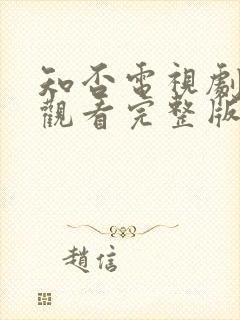 知否電視劇
觀看完整版
趙信